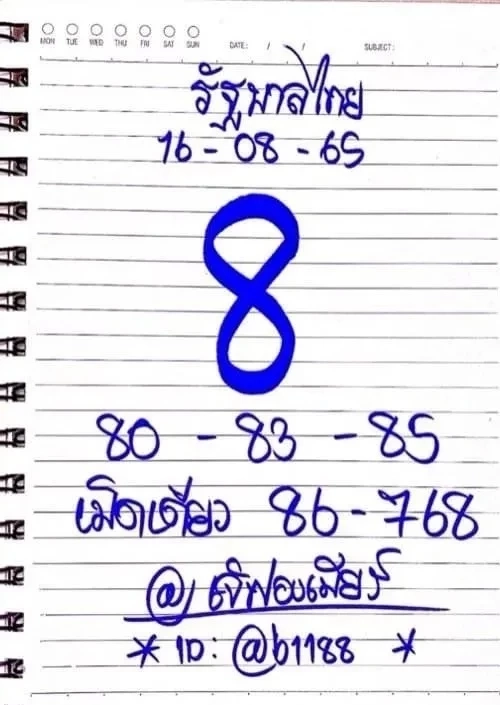 MON TUE WED THU FRI SAT SUN DATE: / / SUBJECT:
รัฐบาลไทย
16-08-65
8
80 - 83 - 85
เม็ดเดียว 86-768
@เจ๊ฟองเบียร์
* ID: @b1188 *